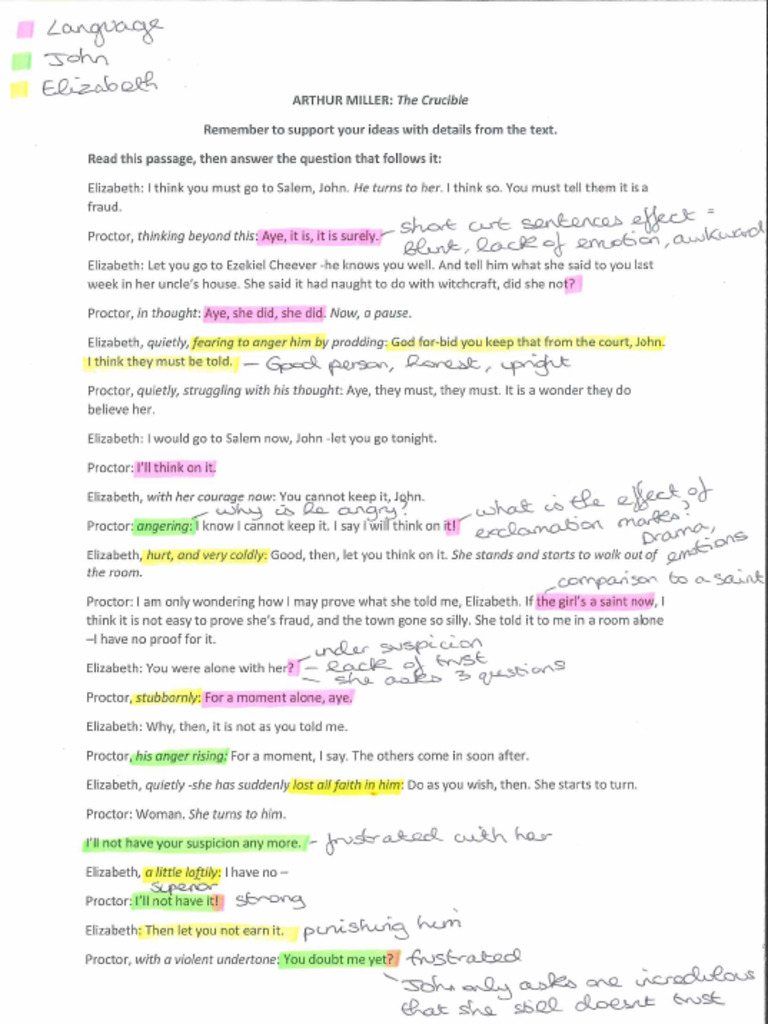 Language
John
Elizabeth
ARTHUR MILLER: The Crucible
Remember to support your ideas with details from the text.
Read this passage, then answer the question that follows it:
Elizabeth: I think you must go to Salem, John. He turns to her. I think so. You must tell them it is a
fraud.
Proctor, thinking beyond this: Aye, it is, it is surely. - short curt sentences effect =
blunt, lack of emotion, awkward
Elizabeth: Let you go to Ezekiel Cheever -he knows you well. And tell him what she said to you last
week in her uncle's house. She said it had naught to do with witchcraft, did she not?
Proctor, in thought: Aye, she did, she did. Now, a pause.
Elizabeth, quietly, fearing to anger him by prodding: God for-bid you keep that from the court, John.
I think they must be told. - Good person, honest, upright
Proctor, quietly, struggling with his thought: Aye, they must, they must. It is a wonder they do
believe her.
Elizabeth: I would go to Salem now, John -let you go tonight.
Proctor: I'll think on it.
Elizabeth, with her courage now: You cannot keep it, John.
why is he angry?
what is the effect of
exclamation marks?
Drama,
emotions
Proctor: angering: I know I cannot keep it. I say I will think on it!
Elizabeth, hurt, and very coldly: Good, then, let you think on it. She stands and starts to walk out of
the room.
comparison to a saint
Proctor: I am only wondering how I may prove what she told me, Elizabeth. If the girl's a saint now, I
think it is not easy to prove she's fraud, and the town gone so silly. She told it to me in a room alone
–I have no proof for it.
under suspicion
Elizabeth: You were alone with her? - lack of trust
- she asks 3 questions
Proctor, stubbornly: For a moment alone, aye.
Elizabeth: Why, then, it is not as you told me.
Proctor, his anger rising: For a moment, I say. The others come in soon after.
Elizabeth, quietly -she has suddenly lost all faith in him: Do as you wish, then. She starts to turn.
Proctor: Woman. She turns to him.
I'll not have your suspicion any more. - frustrated with her
Elizabeth, a little loftily: I have no –
superior
Proctor: I'll not have it! strong
Elizabeth: Then let you not earn it. punishing him
Proctor, with a violent undertone: You doubt me yet? frustrated
John only asks one incredulous
that she still doesnt trust